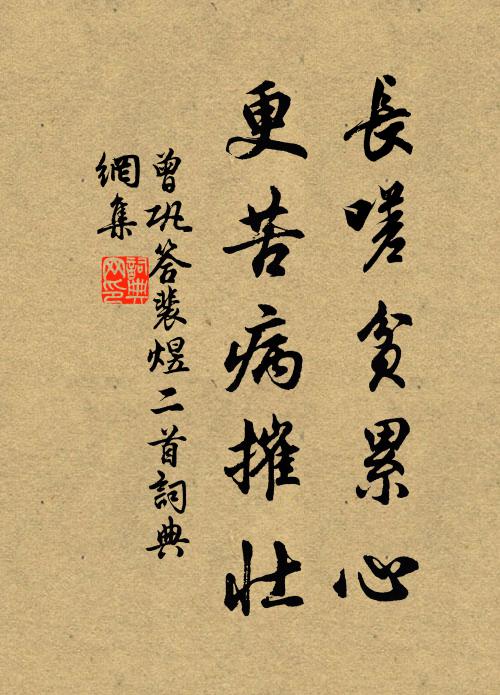 長嗟貧累心
更苦病摧壯
曾巩答裴煜二首詞典
網集
詞典網印